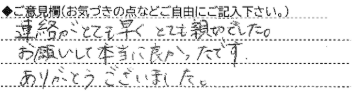 ◆ご意見欄(お気づきの点などご自由にご記入下さい。)
連絡がとても早く とても親切でした。
お願いして本当に良かったです
ありがとうございました。